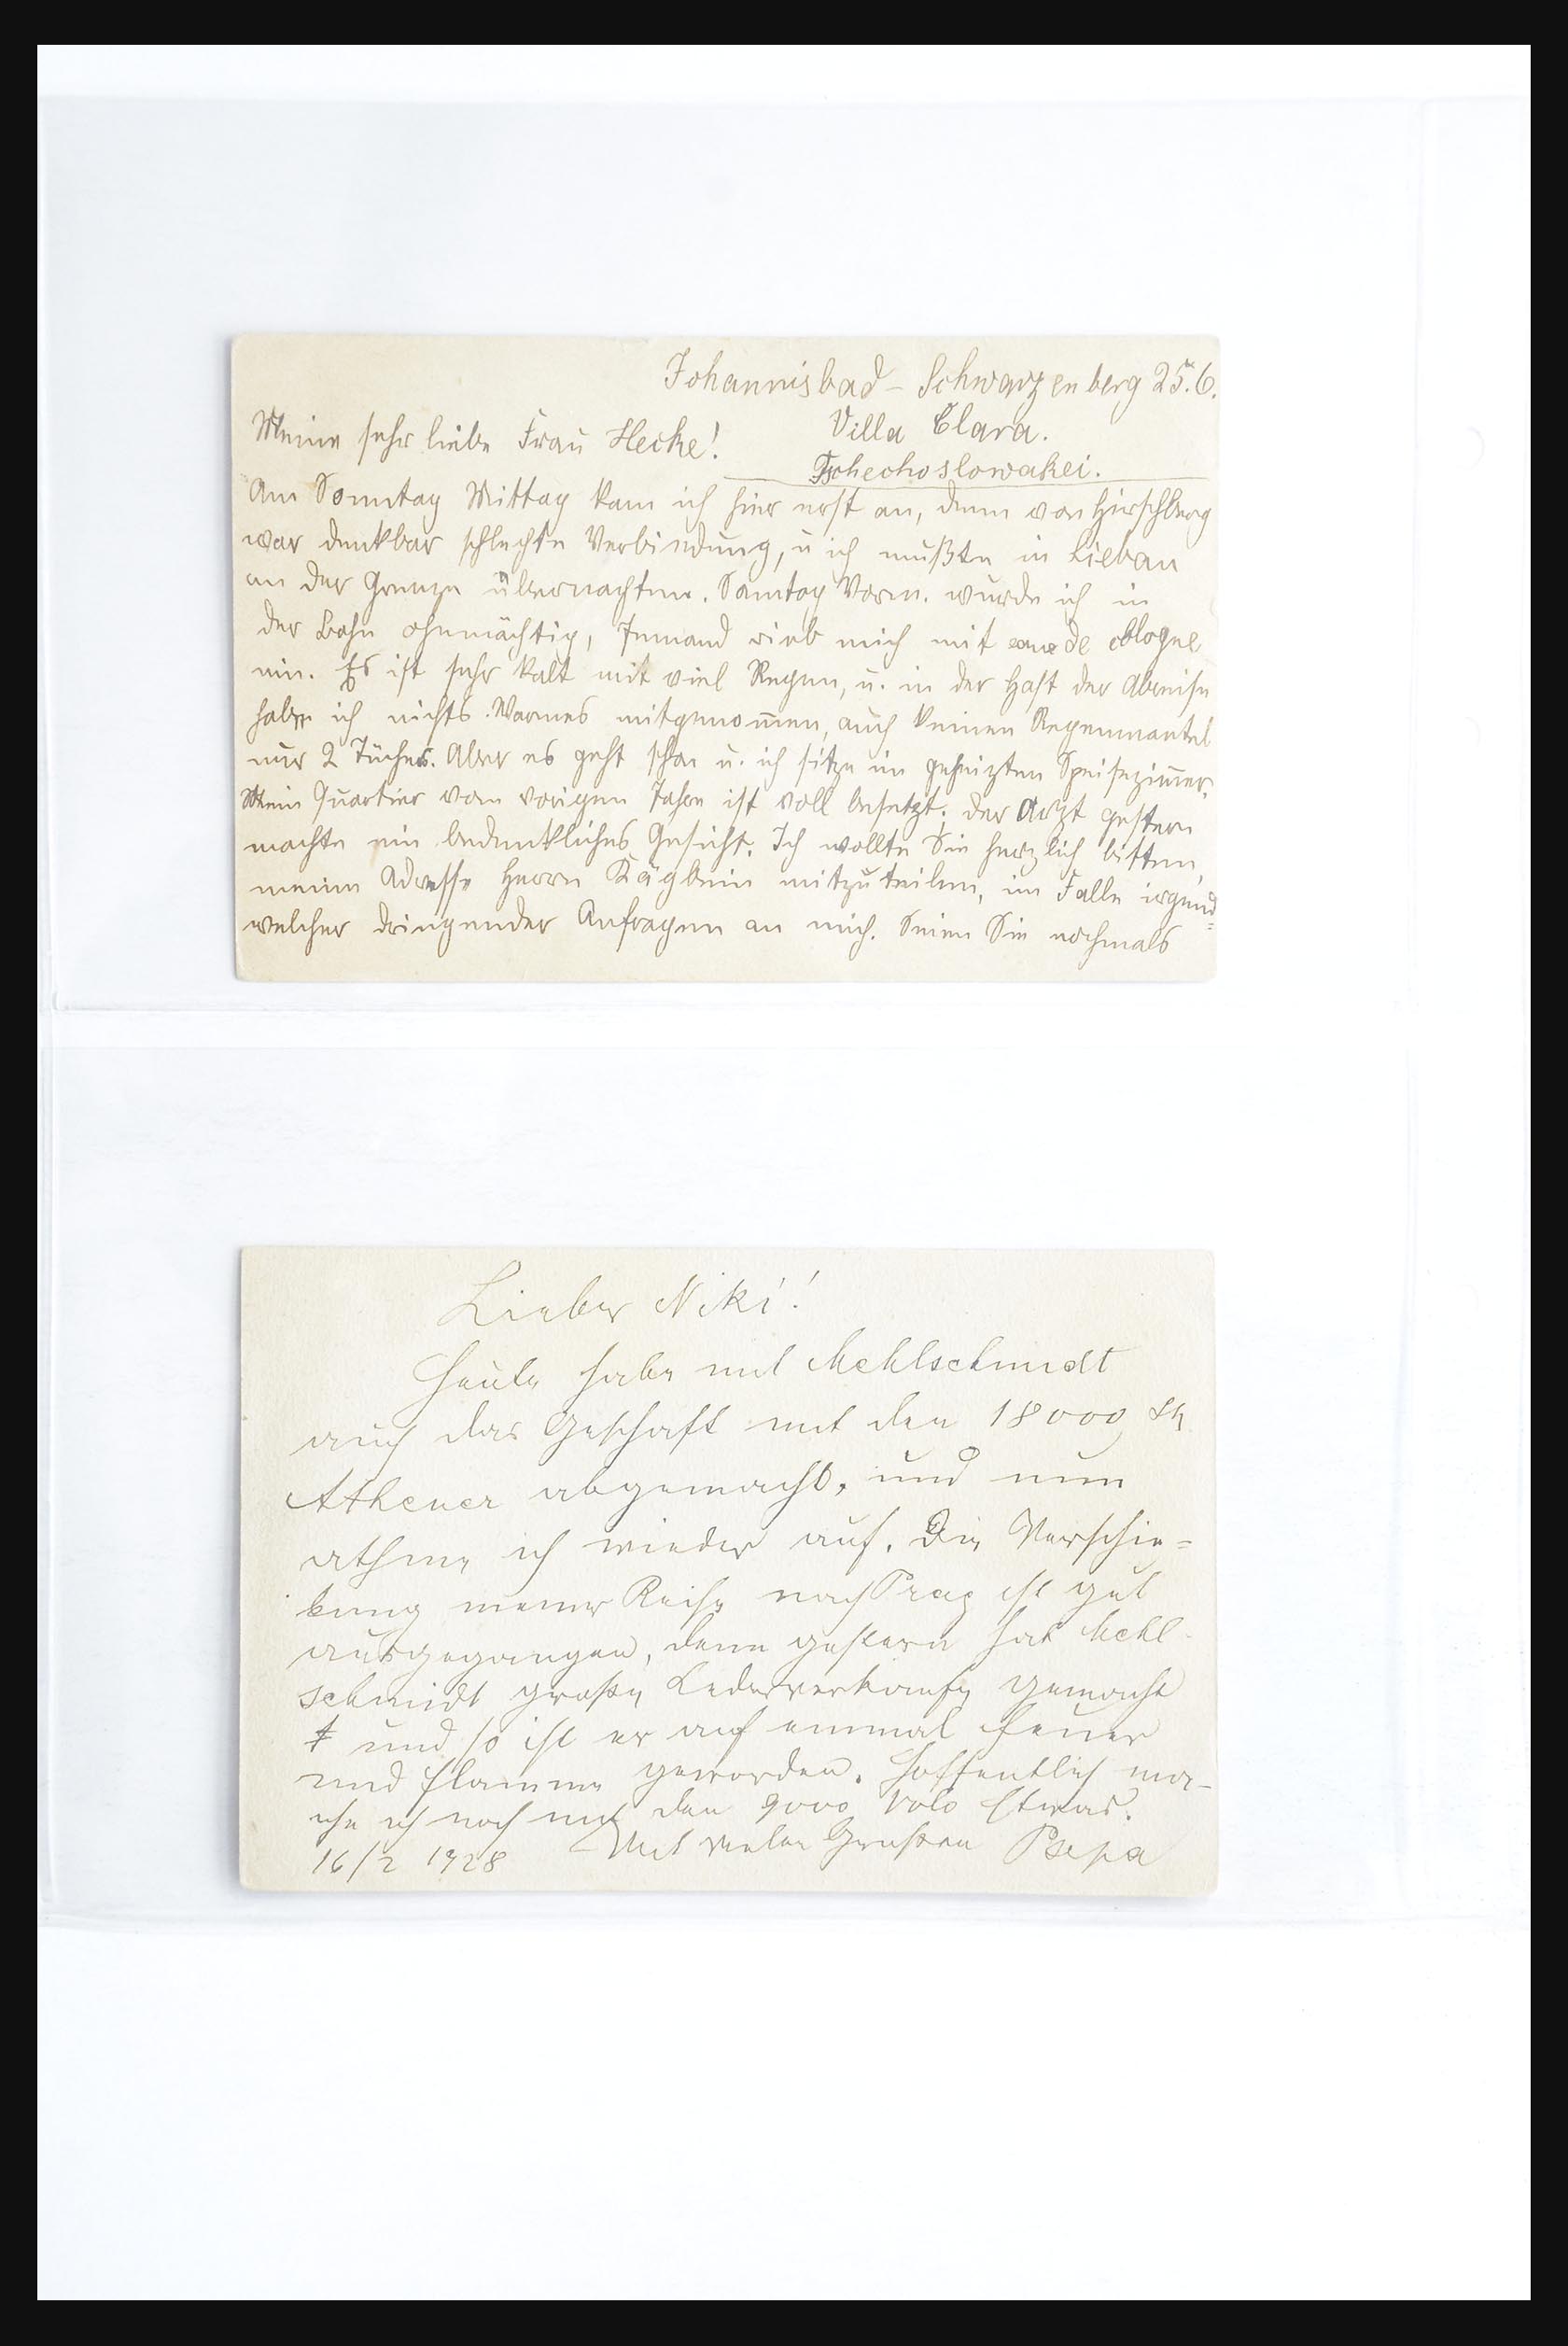 Johannisbad - Schwarzenberg 25.6.
Villa Clara.
Meine sehr liebe Frau Hecke!
Tschechoslowakei.
Am Sonntag Mittag kam ich hier erst an, denn von Hirschberg
war denkbar schlechte Verbindung, u ich mußte in Liebau
an der Grenze übernachten. Sonntag Vorm. wurde ich in
der Bahn ohnmächtig, Jemand rieb mich mit eau de Cologne
ein. Es ist sehr kalt mit viel Regen, u. in der Hast der Abreise
habe ich nichts Warmes mitgenom̄en, auch keinen Regenmantel
nur 2 Tücher. Aber es geht schon u. ich sitze im geheizten Speisezim̄er.
Mein Quartier vom vorigen Jahre ist voll besetzt; der Arzt gestern
machte ein bedenkliches Gesicht. Ich wollte Sie herzlich bitten,
meine Adresse Herrn Käglbein mitzuteilen, im Falle irgend=
welcher dringender Anfragen an mich. Seien Sie nochmals
Lieber Niki!
Heute habe mit Mehlschmidt
auch das Geschäft mit den 18000
Athener abgemacht, und nun
athme ich wieder auf. Die Verschie=
bung meiner Reise nach Prag ist gut
ausgegangen, denn gestern hat Mehl-
schmidt große Lederverkäufe gemacht
und so ist er auf einmal Feuer
und Flamme geworden. Hoffentlich ma-
che ich noch mit den 9000 Volo Etwas.
16/2 1928 Mit vielen Grüßen Papa